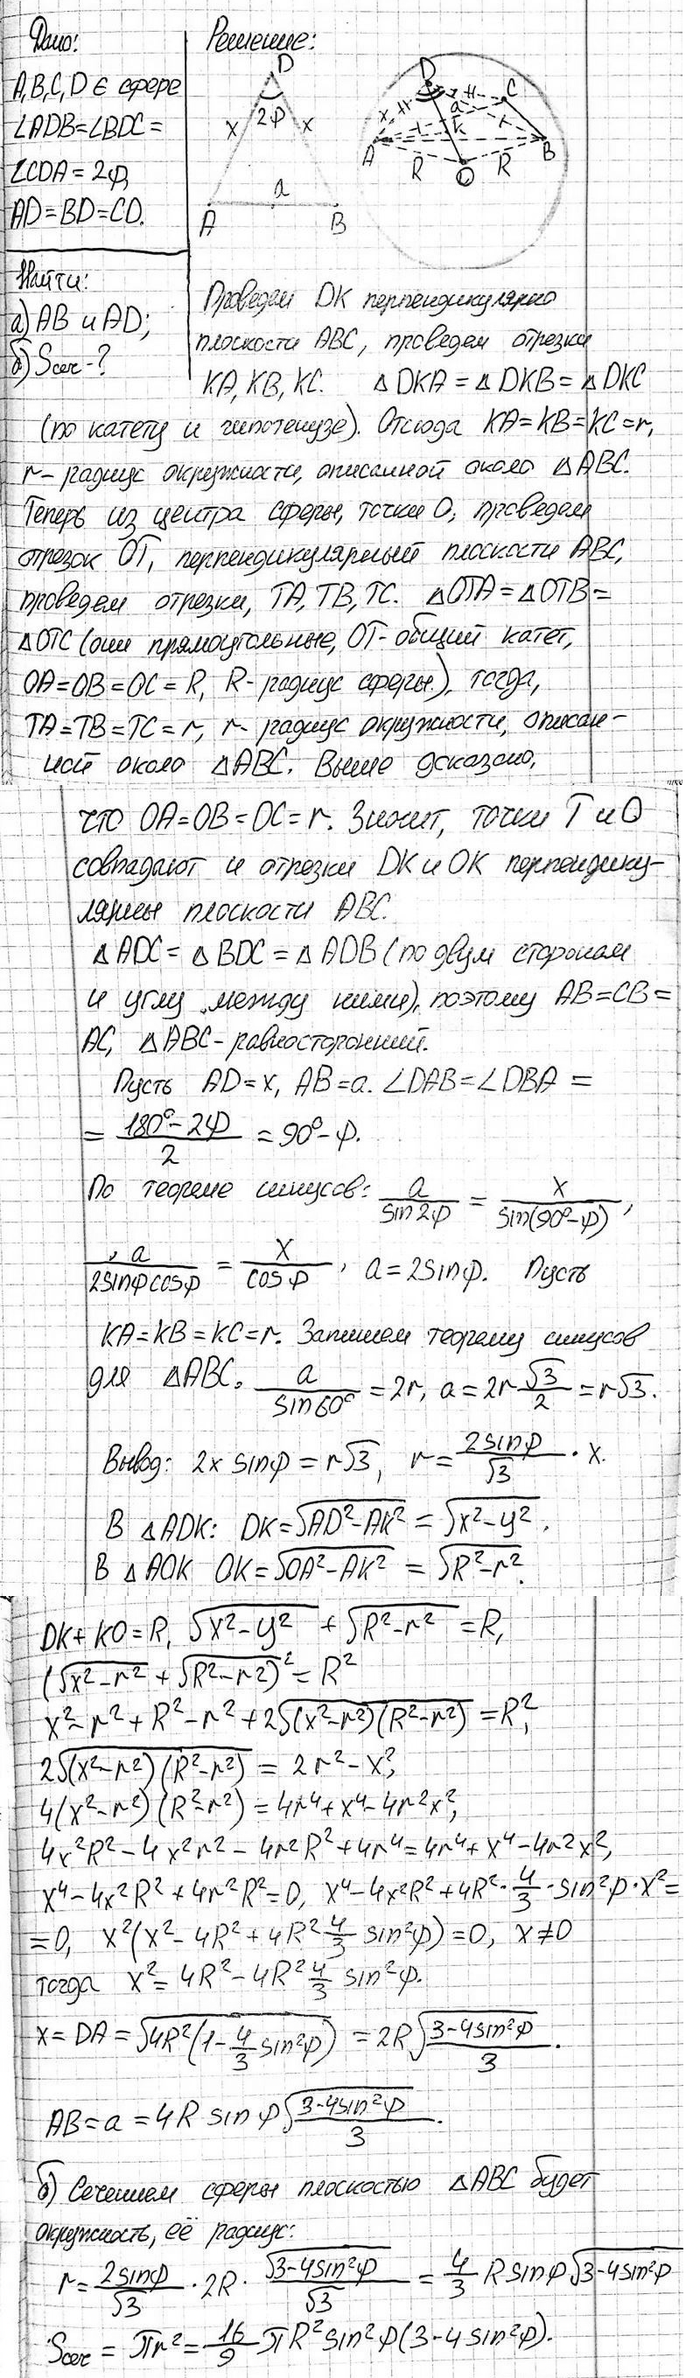 Дано:
A,B,C,D ∈ сфере
∠ADB=∠BDC=
∠CDA=2φ,
AD=BD=CD.
Найти:
а) AB и AD;
б) Sсеч-?
Решение:
D
2φ
x x
a
A B
D
C
x
a
x
K
A
B
R R
O
Проведем DK перпендикулярно
плоскости ABC, проведем отрезки
KA, KB, KC. △DKA = △DKB = △DKC
(по катету и гипотенузе). Отсюда KA=KB=KC=r,
r- радиус окружности, описанной около △ABC.
Теперь из центра сферы, точки O, проведем
отрезок OT, перпендикулярный плоскости ABC,
проведем отрезки, TA, TB, TC. △OTA = △OTB =
△OTC (они прямоугольные, OT- общий катет,
OA=OB=OC=R, R- радиус сферы), тогда,
TA=TB=TC=r, r- радиус окружности, описан-
ной около △ABC. Выше доказано,
что OA=OB=OC=r. Значит, точки T и O
совпадают и отрезки DK и OK перпендику-
лярны плоскости ABC.
△ADC = △BDC = △ADB (по двум сторонам
и углу между ними), поэтому AB=CB=
AC, △ABC- равносторонний.
Пусть AD=x, AB=a. ∠DAB=∠DBA =
= (180°-2φ)/2 = 90°-φ.
По теореме синусов: a/sin2φ = x/sin(90°-φ),
a/2sinφcosφ = x/cosφ, a=2sinφ. Пусть
KA=KB=KC=r. Запишем теорему синусов
для △ABC. a/sin60° = 2r, a=2r √3/2 = r√3.
Вывод: 2x sinφ = r√3, r = 2sinφ/√3 · x.
В △ADK: DK=√(AD²-AK²) = √(x²-y²).
В △AOK OK=√(OA²-AK²) = √(R²-r²).
DK+KO=R, √(x²-y²) + √(R²-r²) = R,
(√(x²-r²) + √(R²-r²))² = R²
x²-r²+R²-r²+2√((x²-r²)(R²-r²)) = R²,
2√((x²-r²)(R²-r²)) = 2r²-x²,
4(x²-r²)(R²-r²) = 4r⁴+x⁴-4r²x²,
4x²R²-4x²r²-4r²R²+4r⁴=4r⁴+x⁴-4r²x²,
x⁴-4x²R²+4r²R²=0, x⁴-4x²R²+4R²·4/3·sin²φ·x²=
=0, x²(x²-4R²+4R² 4/3 sin²φ)=0, x≠0
тогда x²=4R²-4R² 4/3 sin²φ.
x=DA=√(4R²(1-4/3 sin²φ)) = 2R√((3-4sin²φ)/3).
AB=a=4R sinφ√((3-4sin²φ)/3).
б) Сечением сферы плоскостью △ABC будет
окружность, её радиус:
r = 2sinφ/√3 · 2R · √(3-4sin²φ)/√3 = 4/3 R sinφ√(3-4sin²φ)
Sсеч = πr² = 16/9 πR² sin²φ(3-4sin²φ).